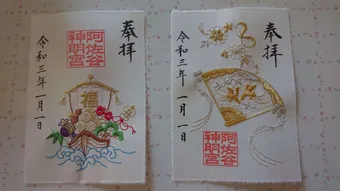 奉拝
阿佐谷
神明宮
福
令和三年一月一日
奉拝
令和三年一月一日
阿佐谷
神明宮